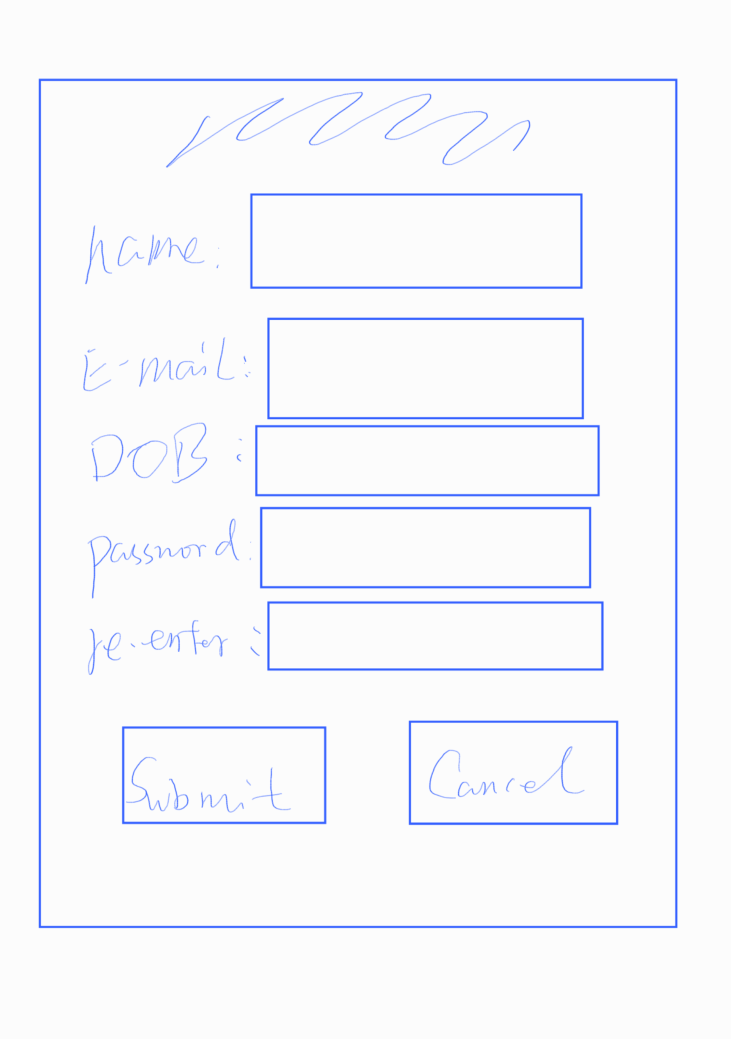 name:
E-mail:
DOB:
password:
re-enter:
Submit
Cancel